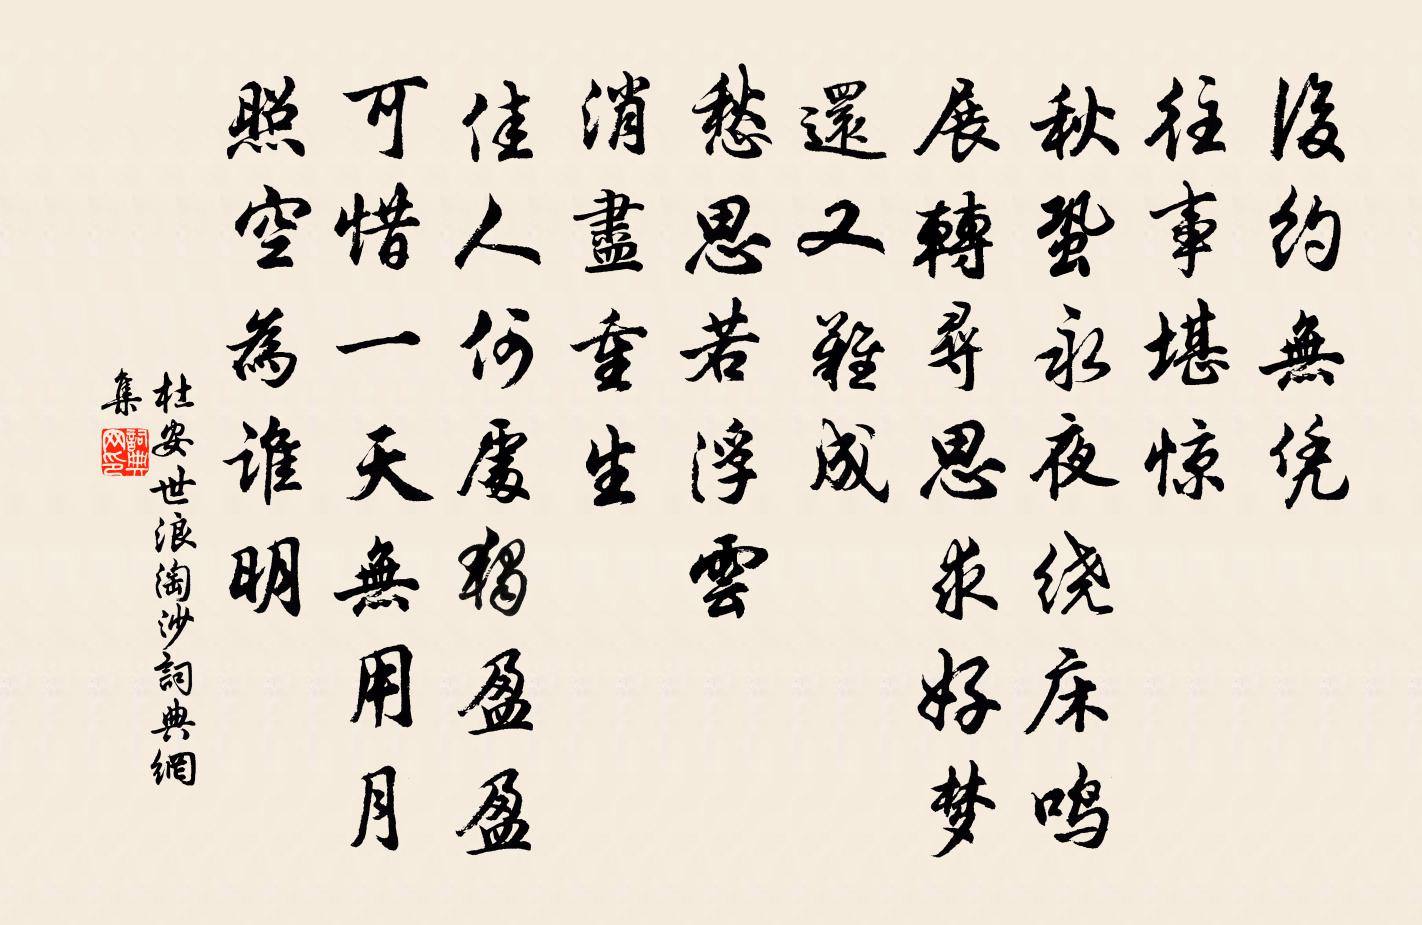 後約無凭
往事堪惊
秋蛩永夜绕床鸣
展轉尋思求好梦
還又難成
愁思若浮雲
消盡重生
佳人何處獨盈盈
可惜一天無用月
照空為谁明
杜安世浪淘沙詞典網
集
詞典网印